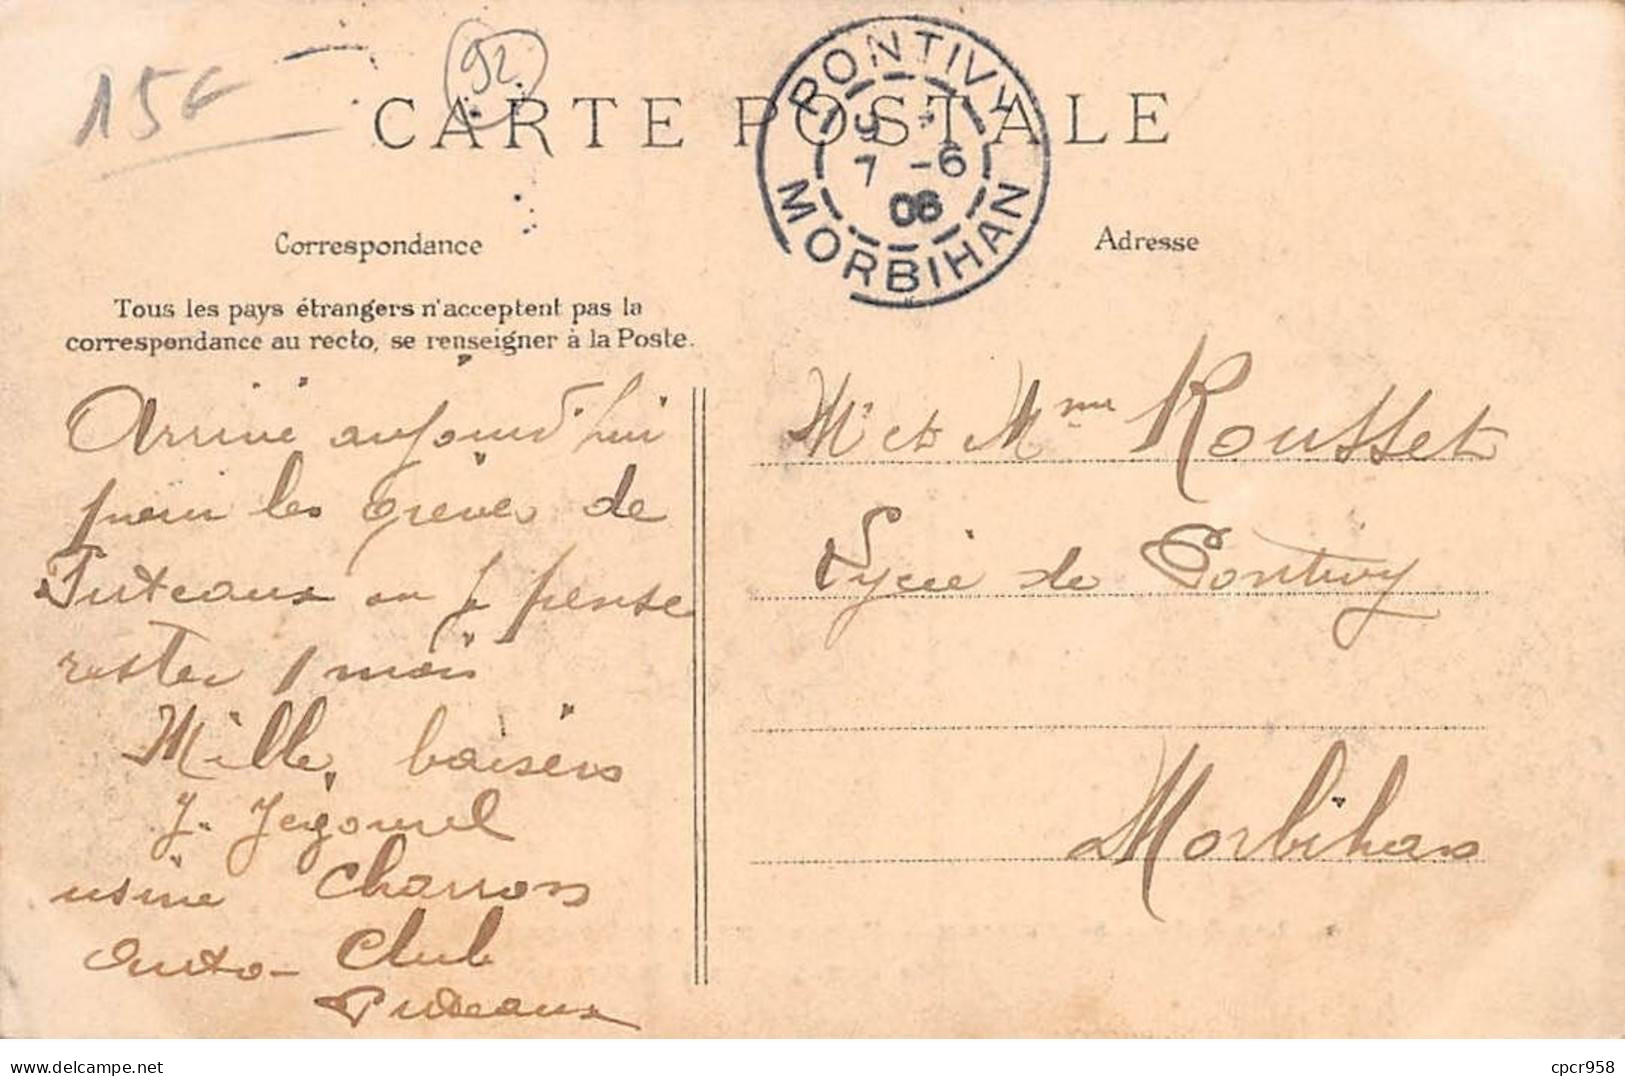 15€
92
CARTE POSTALE
PONTIVY
7 -6
06
MORBIHAN
Correspondance
Adresse
Tous les pays étrangers n'acceptent pas la
correspondance au recto, se renseigner à la Poste.
Arrivé aujourd'hui
pour les grèves de
Puteaux ou je pense
rester 1 mois
Mille baisers
J. Jegourel
usine Charron
Auto-Club
Puteaux
Mr et Mme Rousset
Lycée de Pontivy
Morbihan
cpcr958